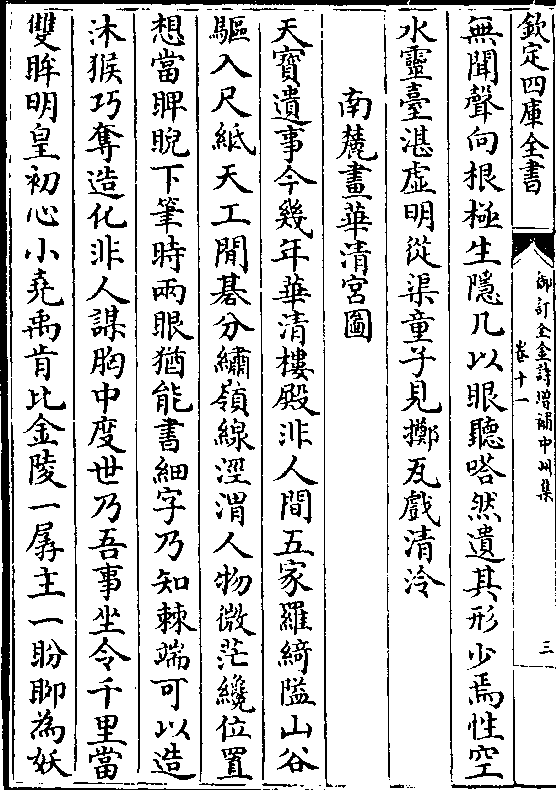 欽定四庫全書
御訂全金詩增補中州集
卷十一
三
無聞聲向根極生隱几以眼聽嗒然遺其形少焉性空
水靈臺湛虛明從渠童子見擲瓦戲清泠
南麓畫華清宮圖
天寶遺事今幾年華清樓殿非人間五家羅綺隘山谷
驅入尺紙天工閒棊分繡嶺線涇渭人物微茫纔位置
想當睥睨下筆時兩眼猶能書細字乃知棘端可以造
沐猴巧奪造化非人謀胸中度世乃吾事坐令千里當
雙眸明皇初心小堯禹肯比金陵一孱主一盼聊為妖